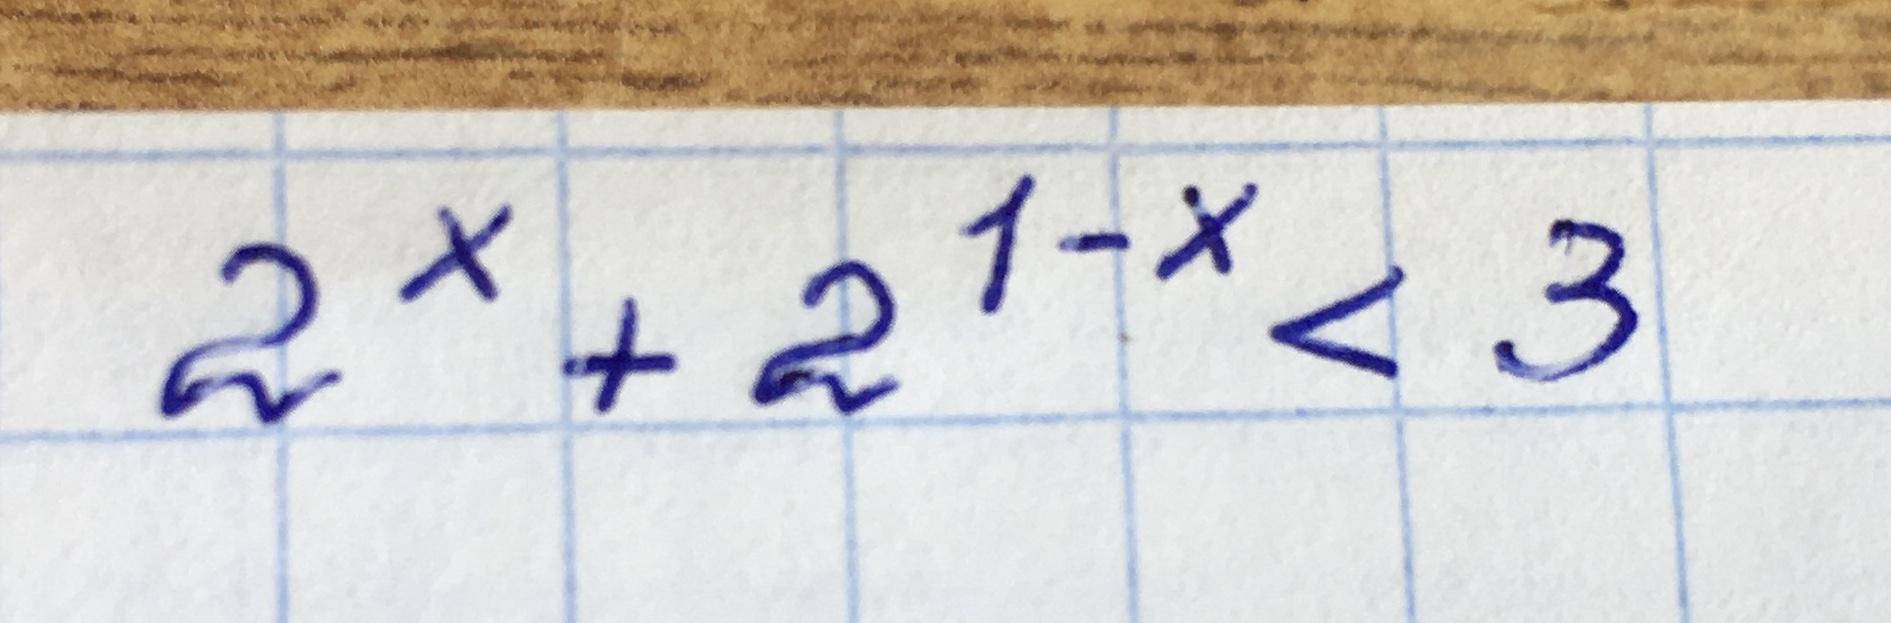 2^x + 2^{1-x} < 3